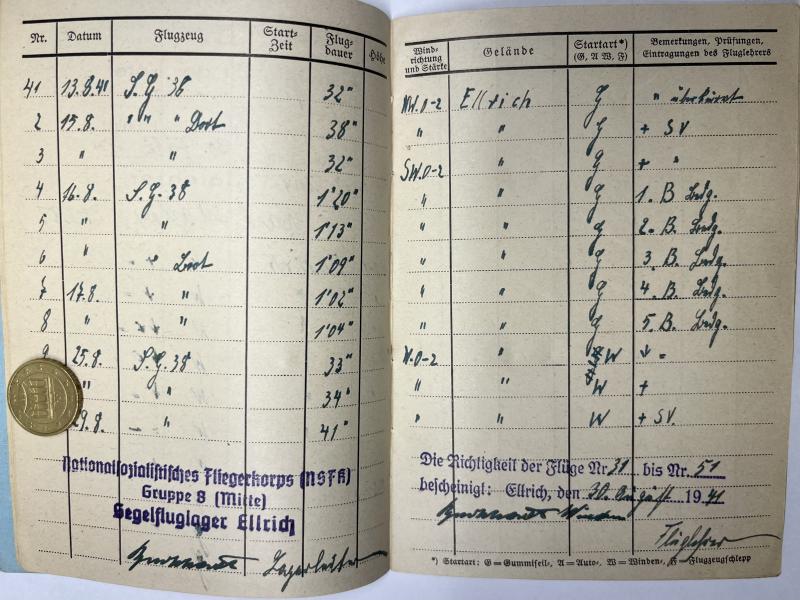 Nr. Datum Flugzeug Start-Zeit Flug-dauer Höhe
41 13.8.41 S.G 38 32"
2 15.8. " " " Boot 38"
3 " " 32"
4 16.8. S.G. 38 1'20"
5 " " 1'13"
6 " " Boot 1'09"
7 17.8. " " 1'02"
8 " " " 1'04"
9 25.8. S.G. 38 33"
" " 34"
29.8. " 41"
Nationalsozialistisches Fliegerkorps (NSFK)
Gruppe 8 (Mitte)
Segelfluglager Ellrich
Lagerleiter
Wind-richtung und Stärke Gelände Startart*) (G, A, W, F) Bemerkungen, Prüfungen, Eintragungen des Fluglehrers
NW.0-2 Ellrich G "
" " G + SV
SW.0-2 " G + "
" " G 1. B Bedg.
" " G 2. B. Bedg.
" " G 3. B. Bedg.
" " G 4. B. Bedg.
" " G 5. B. Bedg.
W.0-2 " W
" " W +
" " W + SV.
Die Richtigkeit der Flüge Nr. 31 bis Nr. 51
bescheinigt: Ellrich, den 30. August 1941
Fluglehrer
*) Startart: G=Gummiseil-, A=Auto-, W=Winden-, F=Flugzeugschlepp